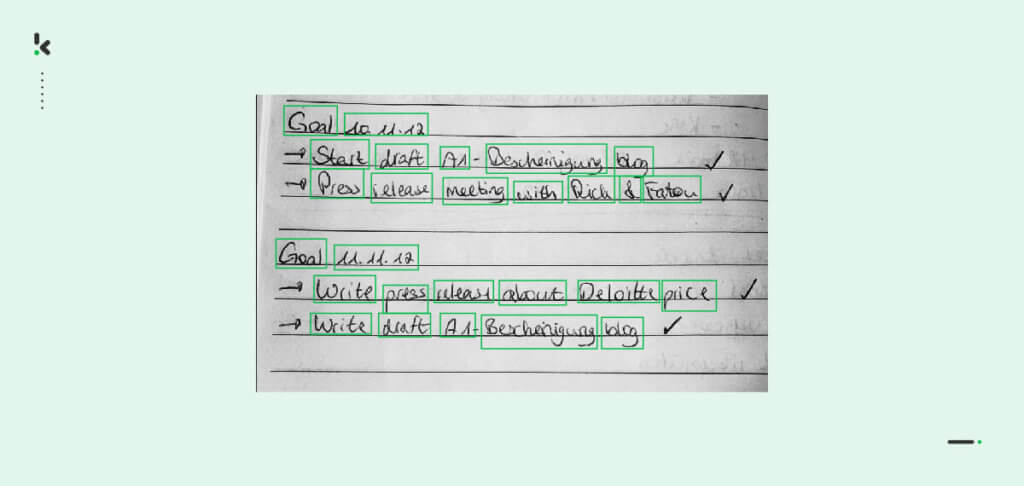 Goal 10.11.12
→ Start draft A1-Bescheinigung blog ✓
→ Press release meeting with Rick & Fatou ✓
Goal 11.11.12
→ Write press release about Deloitte price ✓
→ Write draft A1-Bescheinigung blog ✓